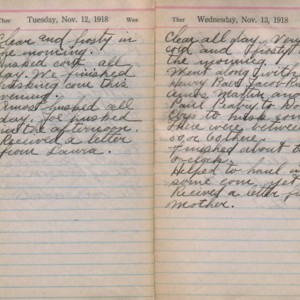 Ther Tuesday, Nov. 12, 1918 Wea
Clear and frosty in
the morning. I
husked corn all
day. We finished
husking corn this
evening.
Ernest husked all
day. Joe husked
in the afternoon.
Received a letter
from Laura.
Ther Wednesday, Nov. 13, 1918
Clear all day. Very
cold and frosty
the morning. I
Went along with
Henry Paul Jacob
Martin and
Paul to
to husk corn
There were between
50 or 60 there.
Finished about
o'clock.
Helped to haul in
some corn yet
Recived a letter
Mother.